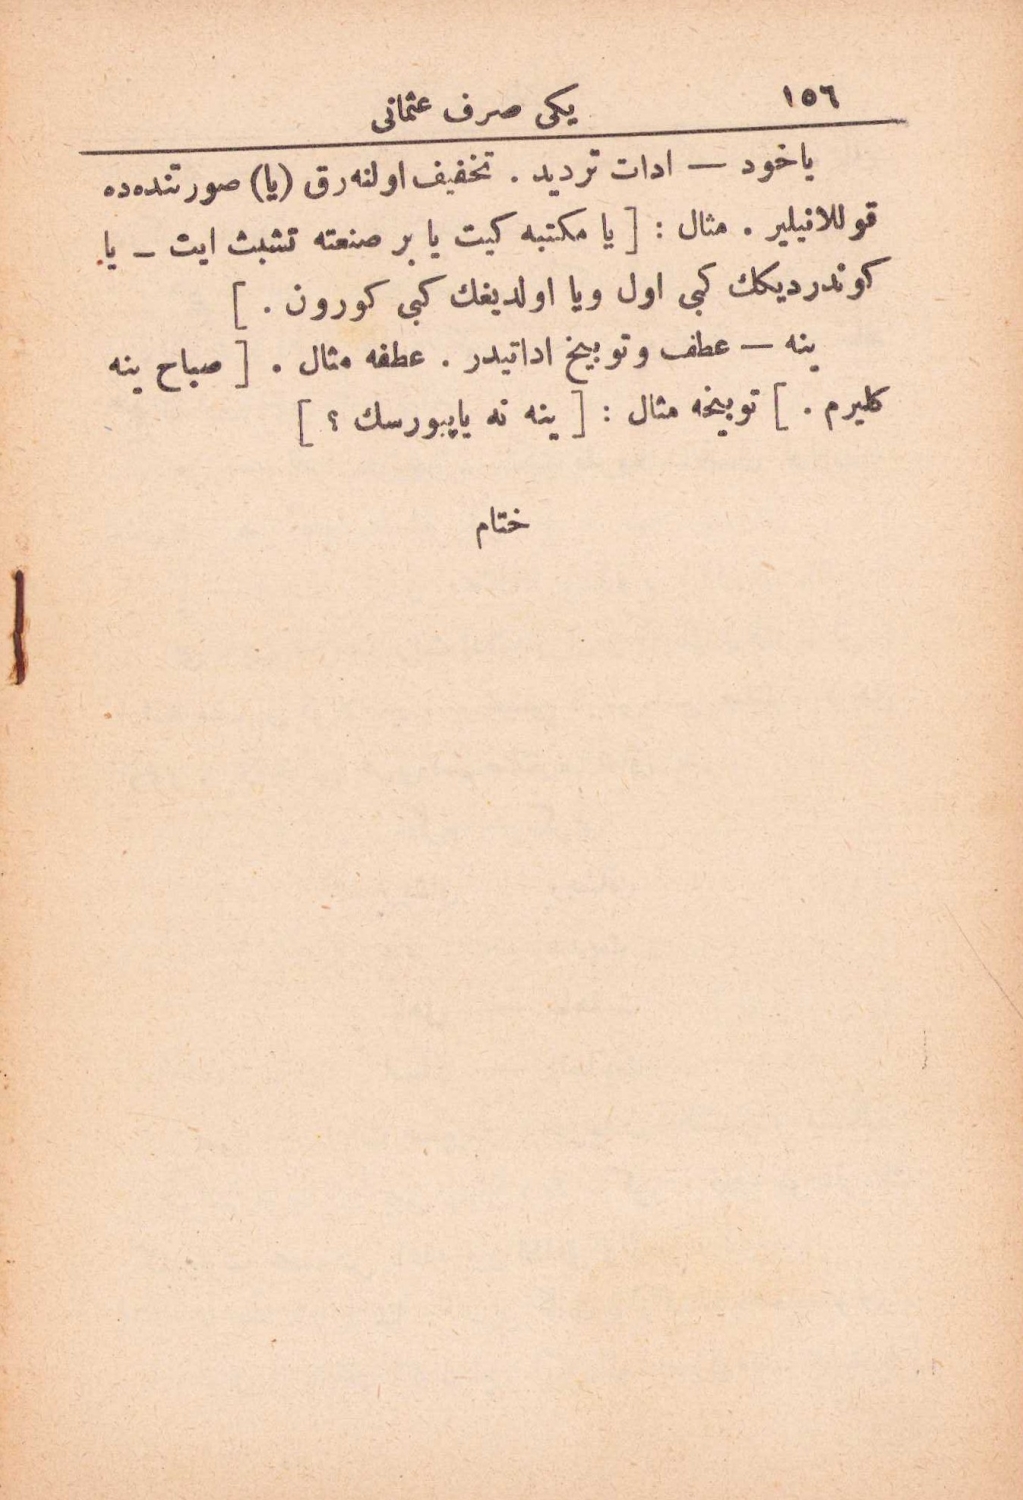 ١٥٦
یکی صرف عثمانی
یاخود — ادات تردید . تخفیف اولنه‌رق (یا) صورتنده‌ده
قوللانیلیر . مثال : [ یا مکتبه کیت یا بر صنعته تشبث ایت – یا
کوندردیکك کبی اول ویا اولدیغك کبی کورون . ]
ینه — عطف و توبیخ اداتیدر . عطفه مثال . [ صباح ینه
کلیرم . ] توبیخه مثال : [ ینه نه یاپیورسك ؟ ]
ختام